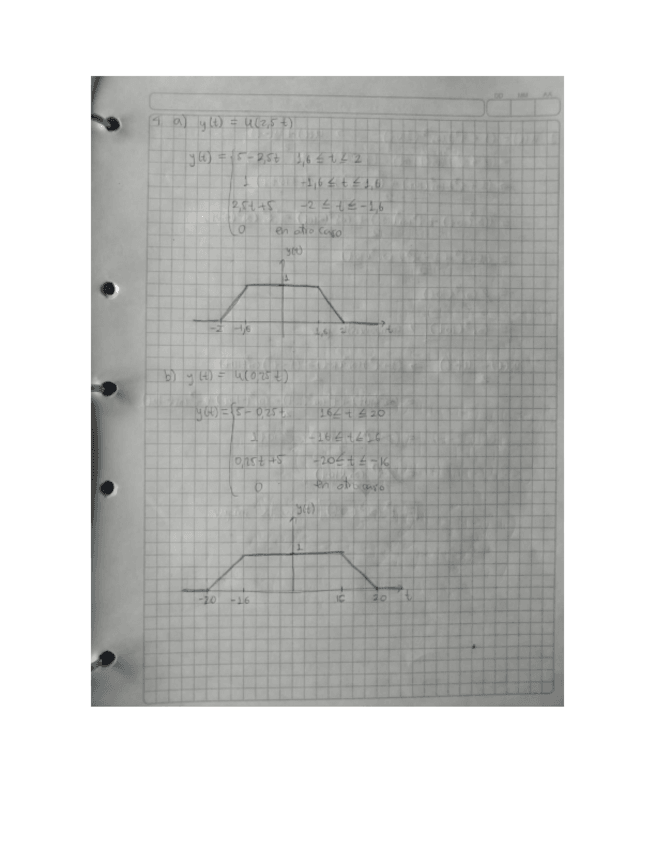 a) y(t) = u(2,5t)
y(t) = { 5-2,5t   1,6 ≤ t ≤ 2
1   -1,6 ≤ t ≤ 1,6
2,5t+5   -2 ≤ t ≤ -1,6
0   en otro caso
y(t)
1
-2 -1,6 1,6 2 t
b) y(t) = u(0,25t)
y(t) = { 5-0,25t   16 ≤ t ≤ 20
1   -16 ≤ t ≤ 16
0,25t+5   -20 ≤ t ≤ -16
0   en otro caso
y(t)
1
-20 -16 16 20 t